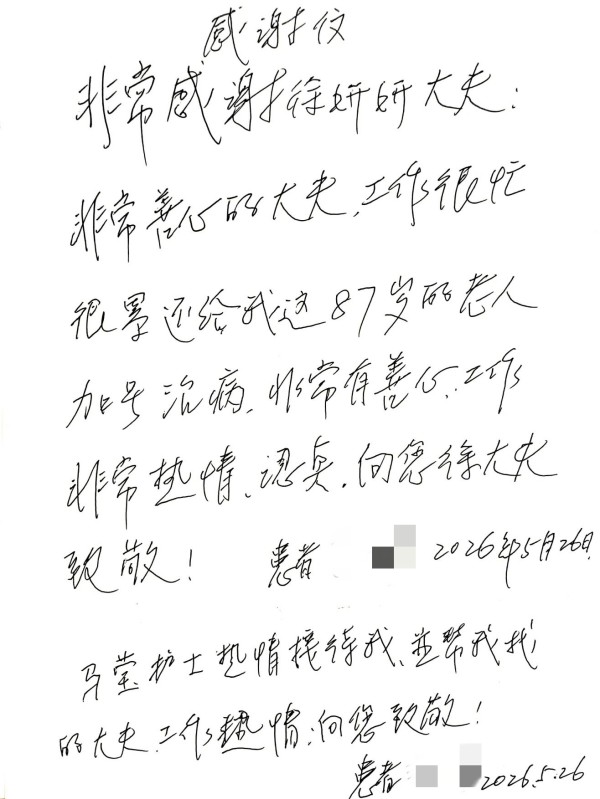 感谢仪
非常感谢徐妍妍大夫:
非常善心的大夫,工作很忙
很累还给我这87岁的老人
加号治病,非常有善心,工作
非常热情、認真,向您徐大夫
致敬! 患者 2026年5月26日
马莹护士热情接待我、并帮我找
的大夫,工作热情,向您致敬!
患者 2026.5.26